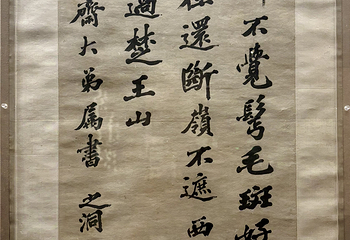 不覺鬢毛斑好
還斷嶺不遮西
過楚王山
齋大弟属書 之洞